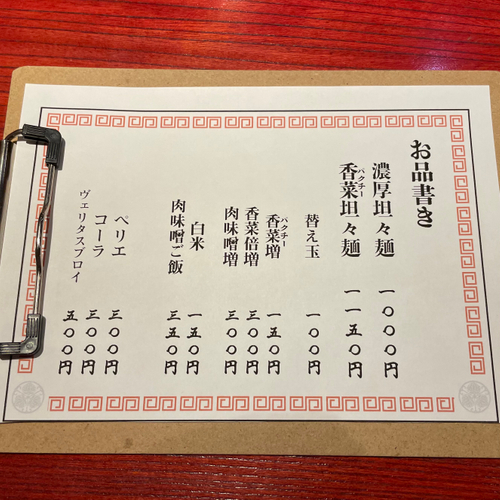 お品書き
濃厚坦々麺 一〇〇〇円
香菜坦々麺 一一五〇円
パクチー
替え玉 一〇〇円
香菜増 一五〇円
パクチー
香菜倍増 三〇〇円
肉味噌増 三〇〇円
白米 一五〇円
肉味噌ご飯 三五〇円
ペリエ 三〇〇円
コーラ 三〇〇円
ヴェリタスブロイ 五〇〇円